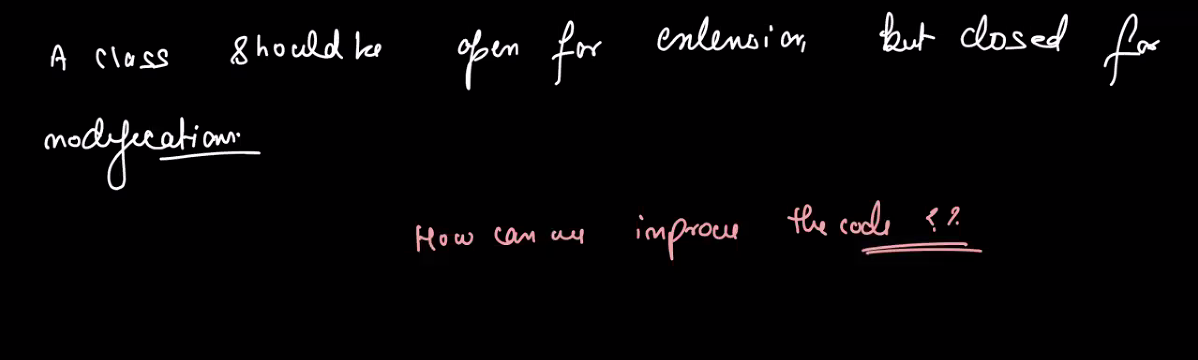 A class should be open for extension, but closed for
modification.
How can we improve the code ??